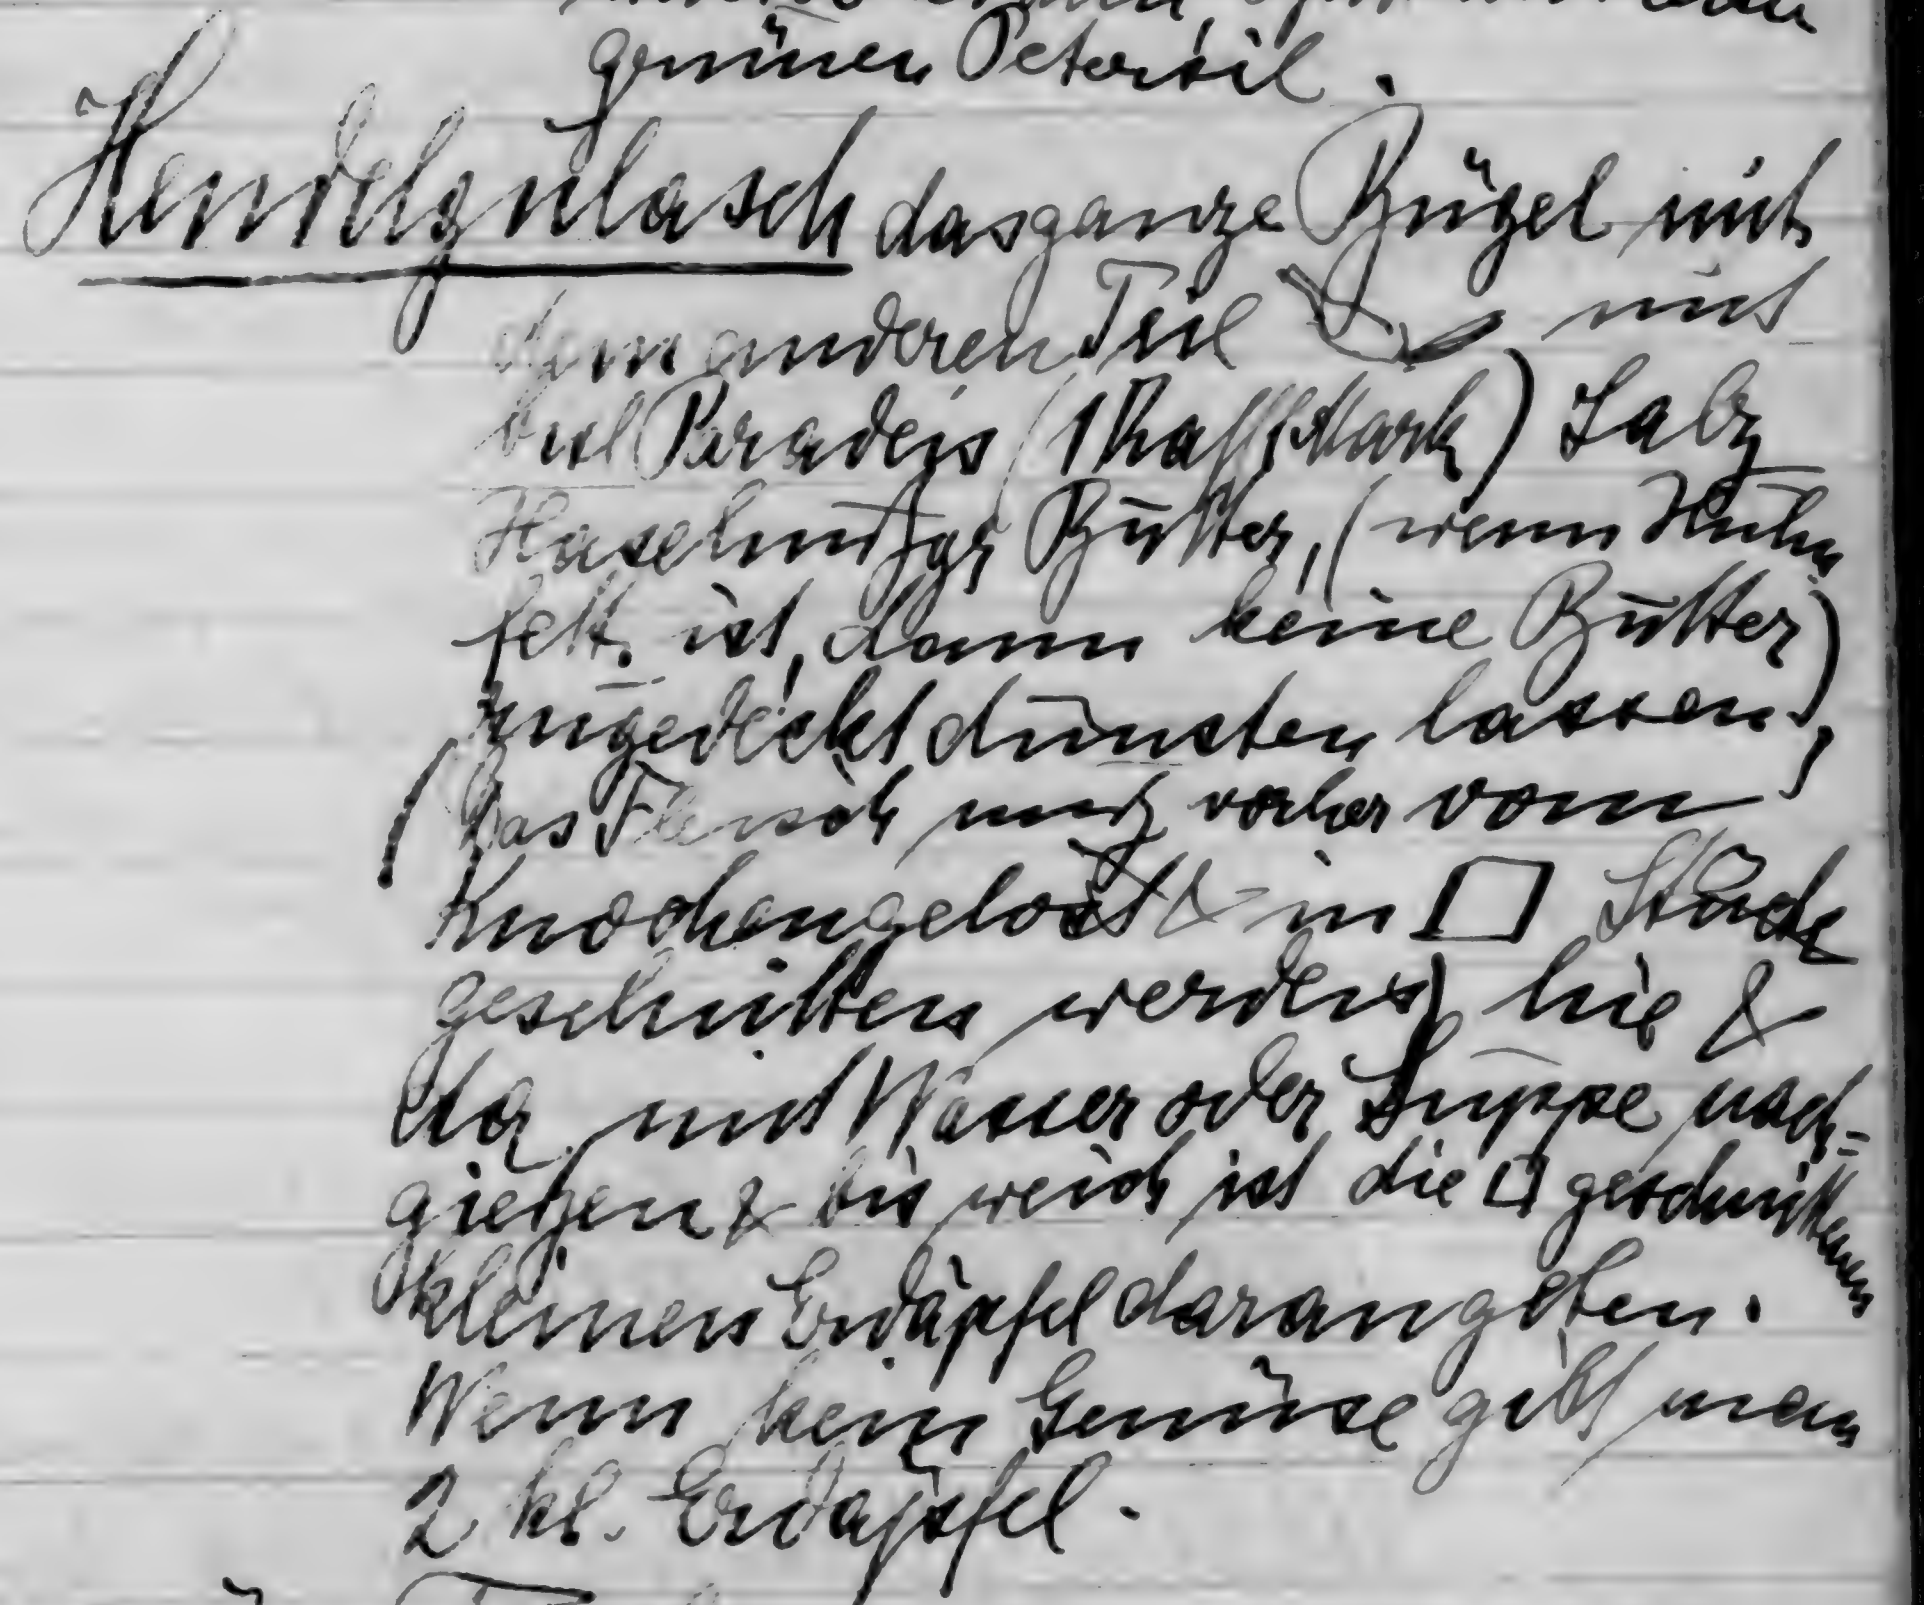 grünen Petersil.
Hendelgulasch das ganze Bügel mit
dem anderen Teil mit
viel Paradeis (1 Kaffl Mark) Salz
Haselnußgr Butter, (wenn Huhn
fett ist, dann keine Butter)
zugedeckt dünsten lassen,
(Das Fleisch muß vorher vom
Knochen gelöst & in □ Stücke
geschnitten werden) hie &
da mit Wasser oder Suppe nach=
gießen & bis weich ist die □ geschnittenen
kleinen Erdäpfel daran geben.
Wenn kein Gemüse gibt man
2 kl. Erdäpfel.